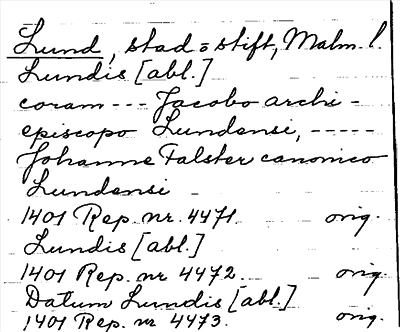 Lund, stad o stift, Malm. l.
Lundis [abl.]
coram --- Jacobo archi-
episcopo Lundensi, -----
Johanne Falster canonico
Lundensi -
1401 Rep. nr. 4471. orig.
Lundis [abl.]
1401 Rep. nr 4472. orig.
Datum Lundis [abl.]
1401 Rep. nr 4473. orig.